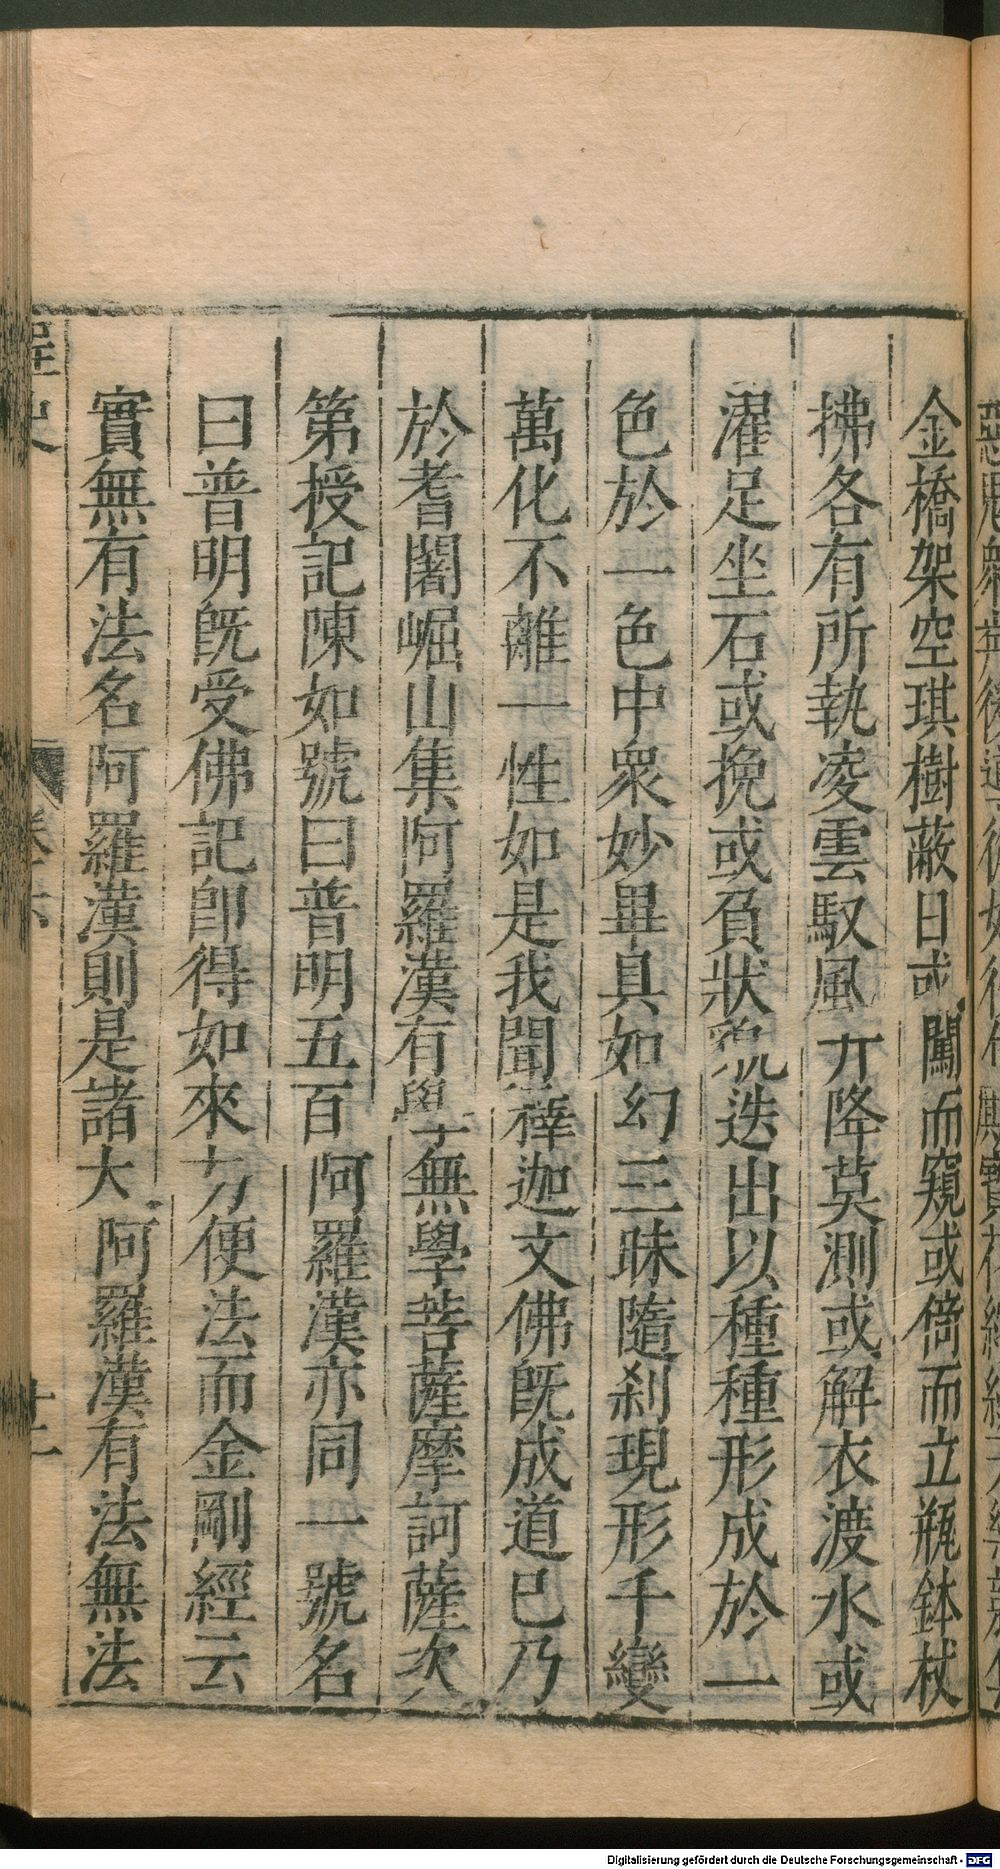 金橋架空琪樹蔽日或闖而窺或倚而立瓶鉢杖
拂各有所執凌雲馭風升降莫測或解衣渡水或
濯足坐石或挽或負狀貌迭出以種種形成於一
色於一色中衆妙畢具如幻三昧隨剎現形千變
萬化不離一性如是我聞釋迦文佛既成道已乃
於耆闍崛山集阿羅漢有學無學菩薩摩訶薩次
第授記陳如號曰普明五百阿羅漢亦同一號名
曰普明既受佛記即得如來方便法而金剛經云
實無有法名阿羅漢則是諸大阿羅漢有法無法
桯史
卷六
十二
Digitalisierung gefördert durch die Deutsche Forschungsgemeinschaft - DFG